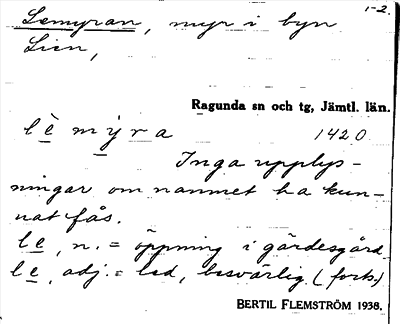 1-2.
Lemyran, myr i byn
Lien,
Ragunda sn och tg, Jämtl. län.
lè mýra 1420
Inga upplys-
ningar om namnet ha kun-
nat fås.
le, n. = öppning i gärdesgård
le, adj. = led, besvärlig (forts.)
BERTIL FLEMSTRÖM 1938.